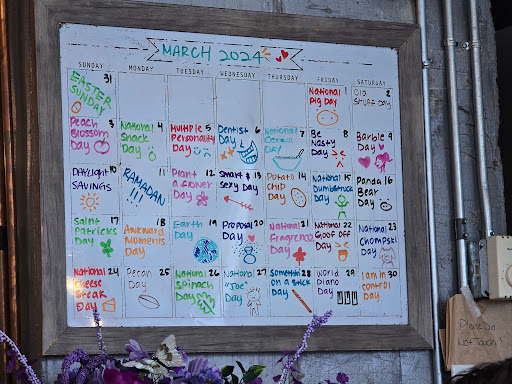 MARCH 2024
SUNDAY MONDAY TUESDAY WEDNESDAY THURSDAY FRIDAY SATURDAY
31
EASTER
SUNDAY
1
National
Pig Day
2
Old
Stuff Day
3
Peach
Blossom
Day
4
National
Snack
Day
5
Multiple
Personality
Day
6
Dentist
Day
7
National
Cereal
Day
8
Be
Nasty
Day
9
Barbie
Day
10
DAYLIGHT
SAVINGS
11
RAMADAN
!!!
12
Plant
a flower
Day
13
Smart &
Sexy Day
14
Potato
Chip
Day
15
National
Dumbstruck
Day
16
Panda
Bear
Day
17
Saint
Patricks
Day
18
Awkward
Moments
Day
19
Earth
Day
20
Proposal
Day
21
National
Fragrence
Day
22
National
Goof Off
Day
23
National
Chompski
Day
24
National
Cheese
Steak
Day
25
Pecan
Day
26
National
Spinach
Day
27
National
"Joe"
Day
28
Somethin
on a stick
Day
29
World
Piano
Day
30
I am in
control
Day
Please Do
Not Touch!